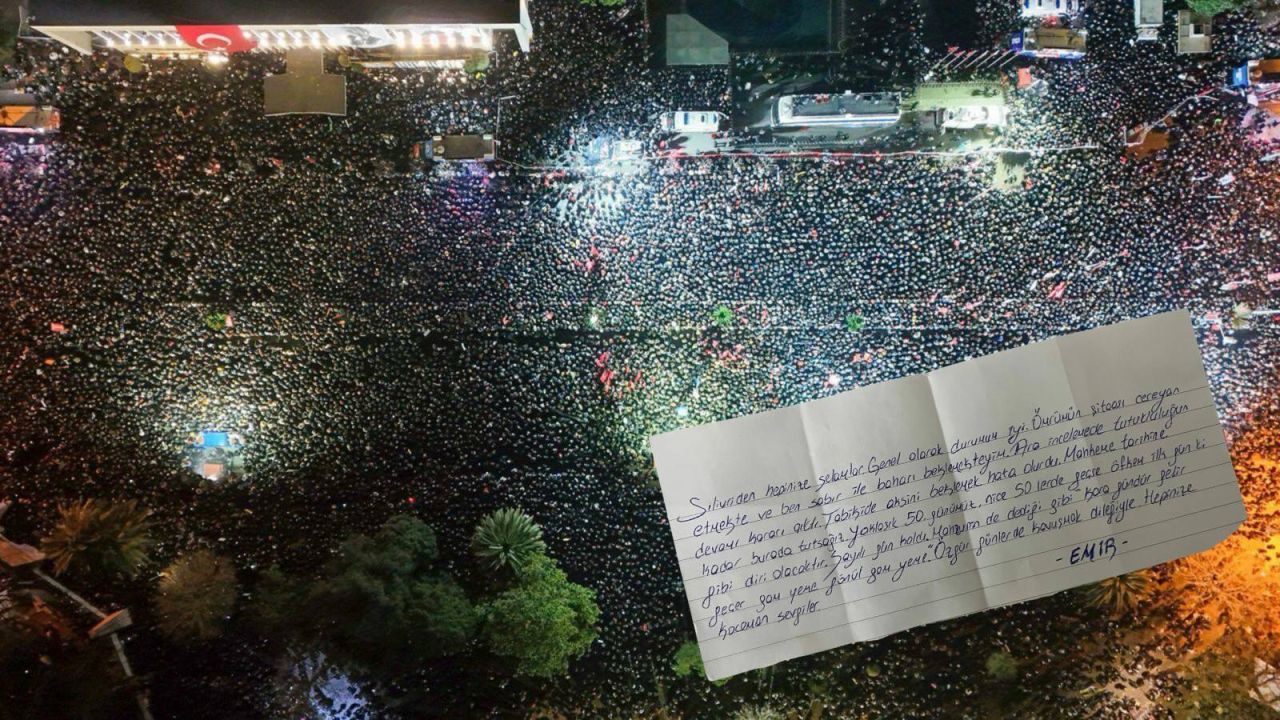 Silivriden hepinize selamlar. Genel olarak durumum iyi. Ömrümün şitaası cereyan
etmekte ve ben sabır ile baharı beklemekteyim. Ara incelemede tutukluluğun
devamı kararı çıktı. Tabikide aksini beklemek hata olurdu. Mahkeme tarihine
kadar burada tutsağız. Yaklaşık 50. günümüz, nice 50 lerde geçse öfkem ilk gün ki
gibi diri olacaktır. Sayılı gün kaldı. Manganın de dediği gibi "kara gündür gelir
geçer gam yeme gönül gam yeme". Özgür günlerde kavuşmak dileğiyle Hepinize
kocaman sevgiler
- EMİR -